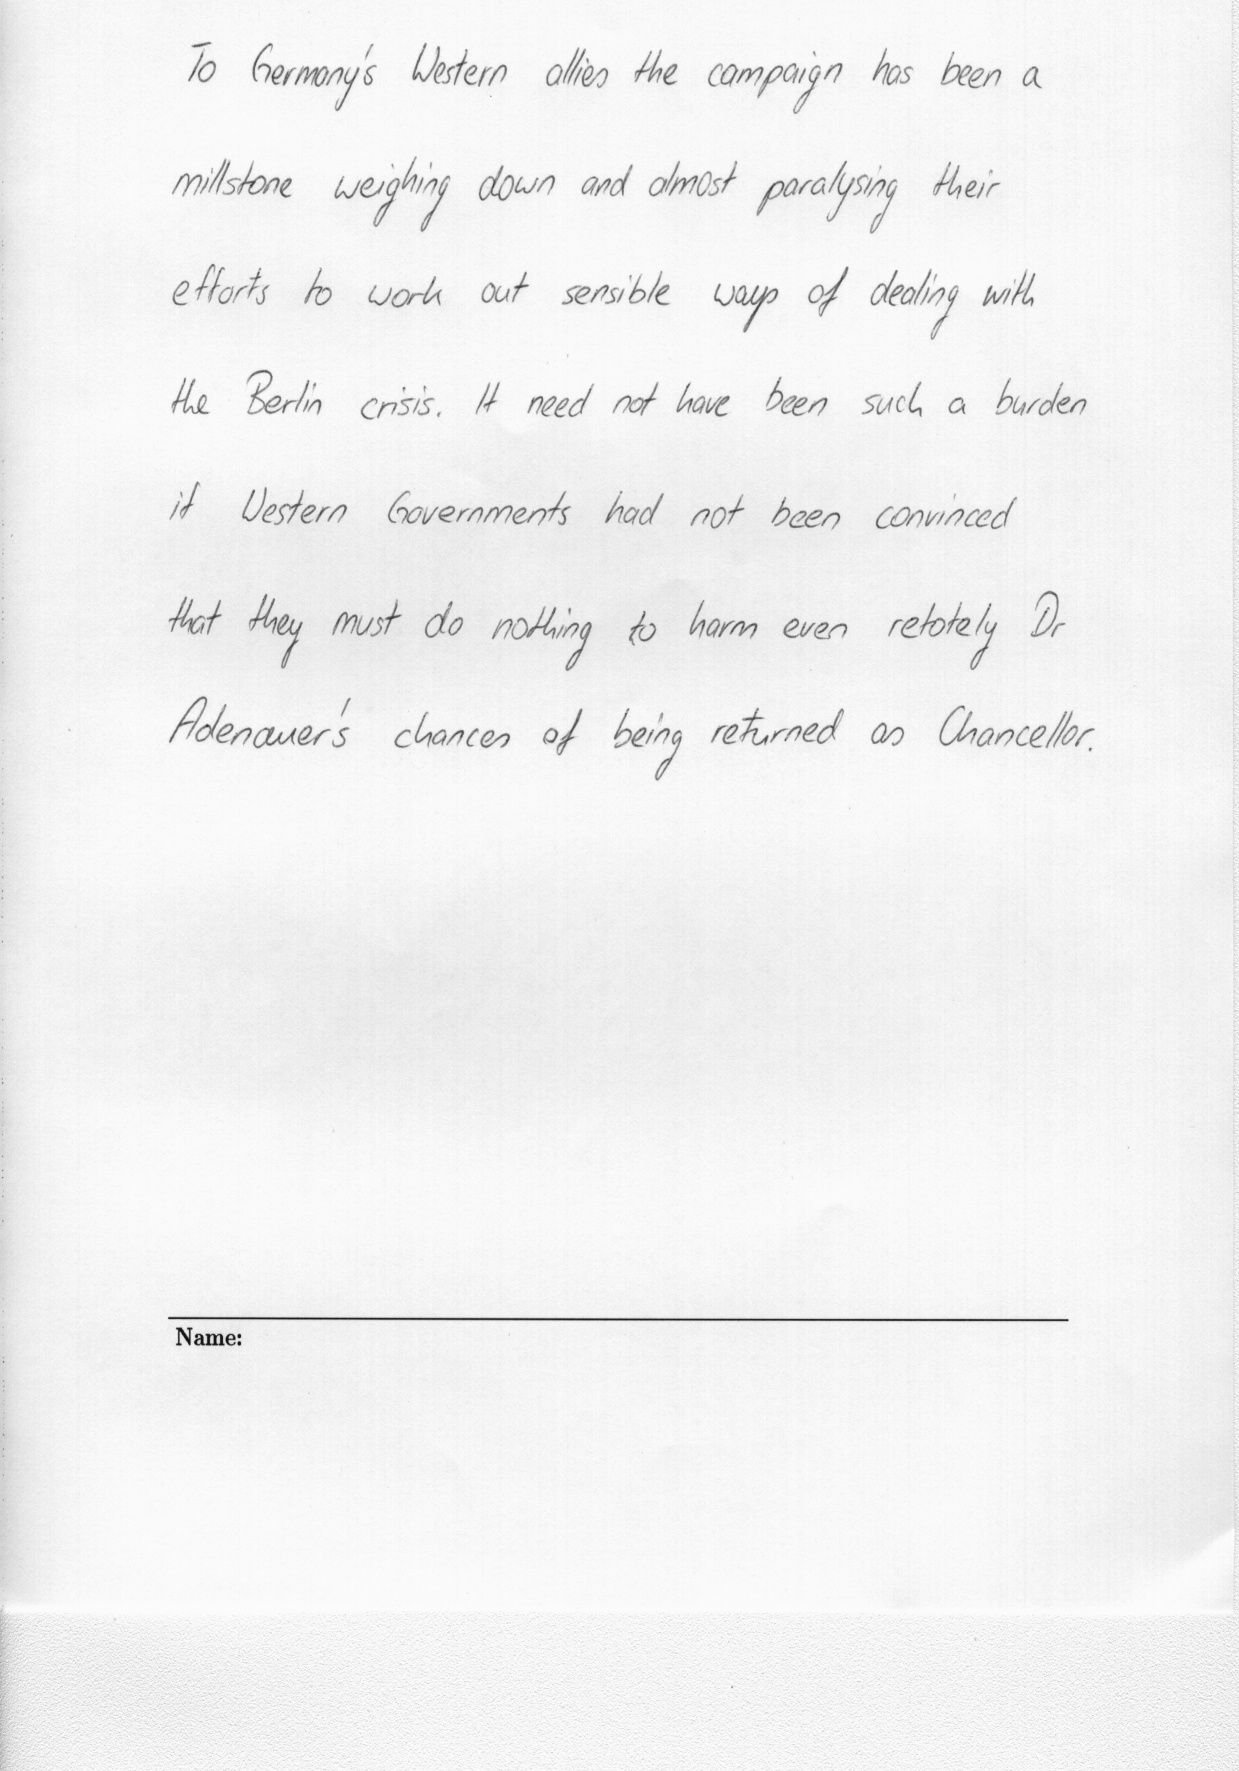 To Germany's Western allies the campaign has been a
millstone weighing down and almost paralysing their
efforts to work out sensible ways of dealing with
the Berlin crisis. It need not have been such a burden
if Western Governments had not been convinced
that they must do nothing to harm even retotely Dr
Adenauer's chances of being returned as Chancellor.
Name: